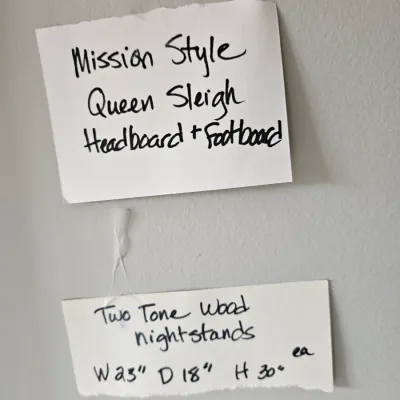 Mission Style
Queen Sleigh
Headboard + Footboard
Two Tone Wood
nightstands
W 23" D 18" H 30" ea